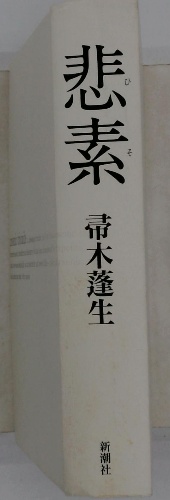 悲素
ひそ
帚木蓬生
新潮社